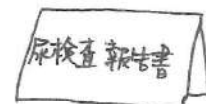 尿検査報告書